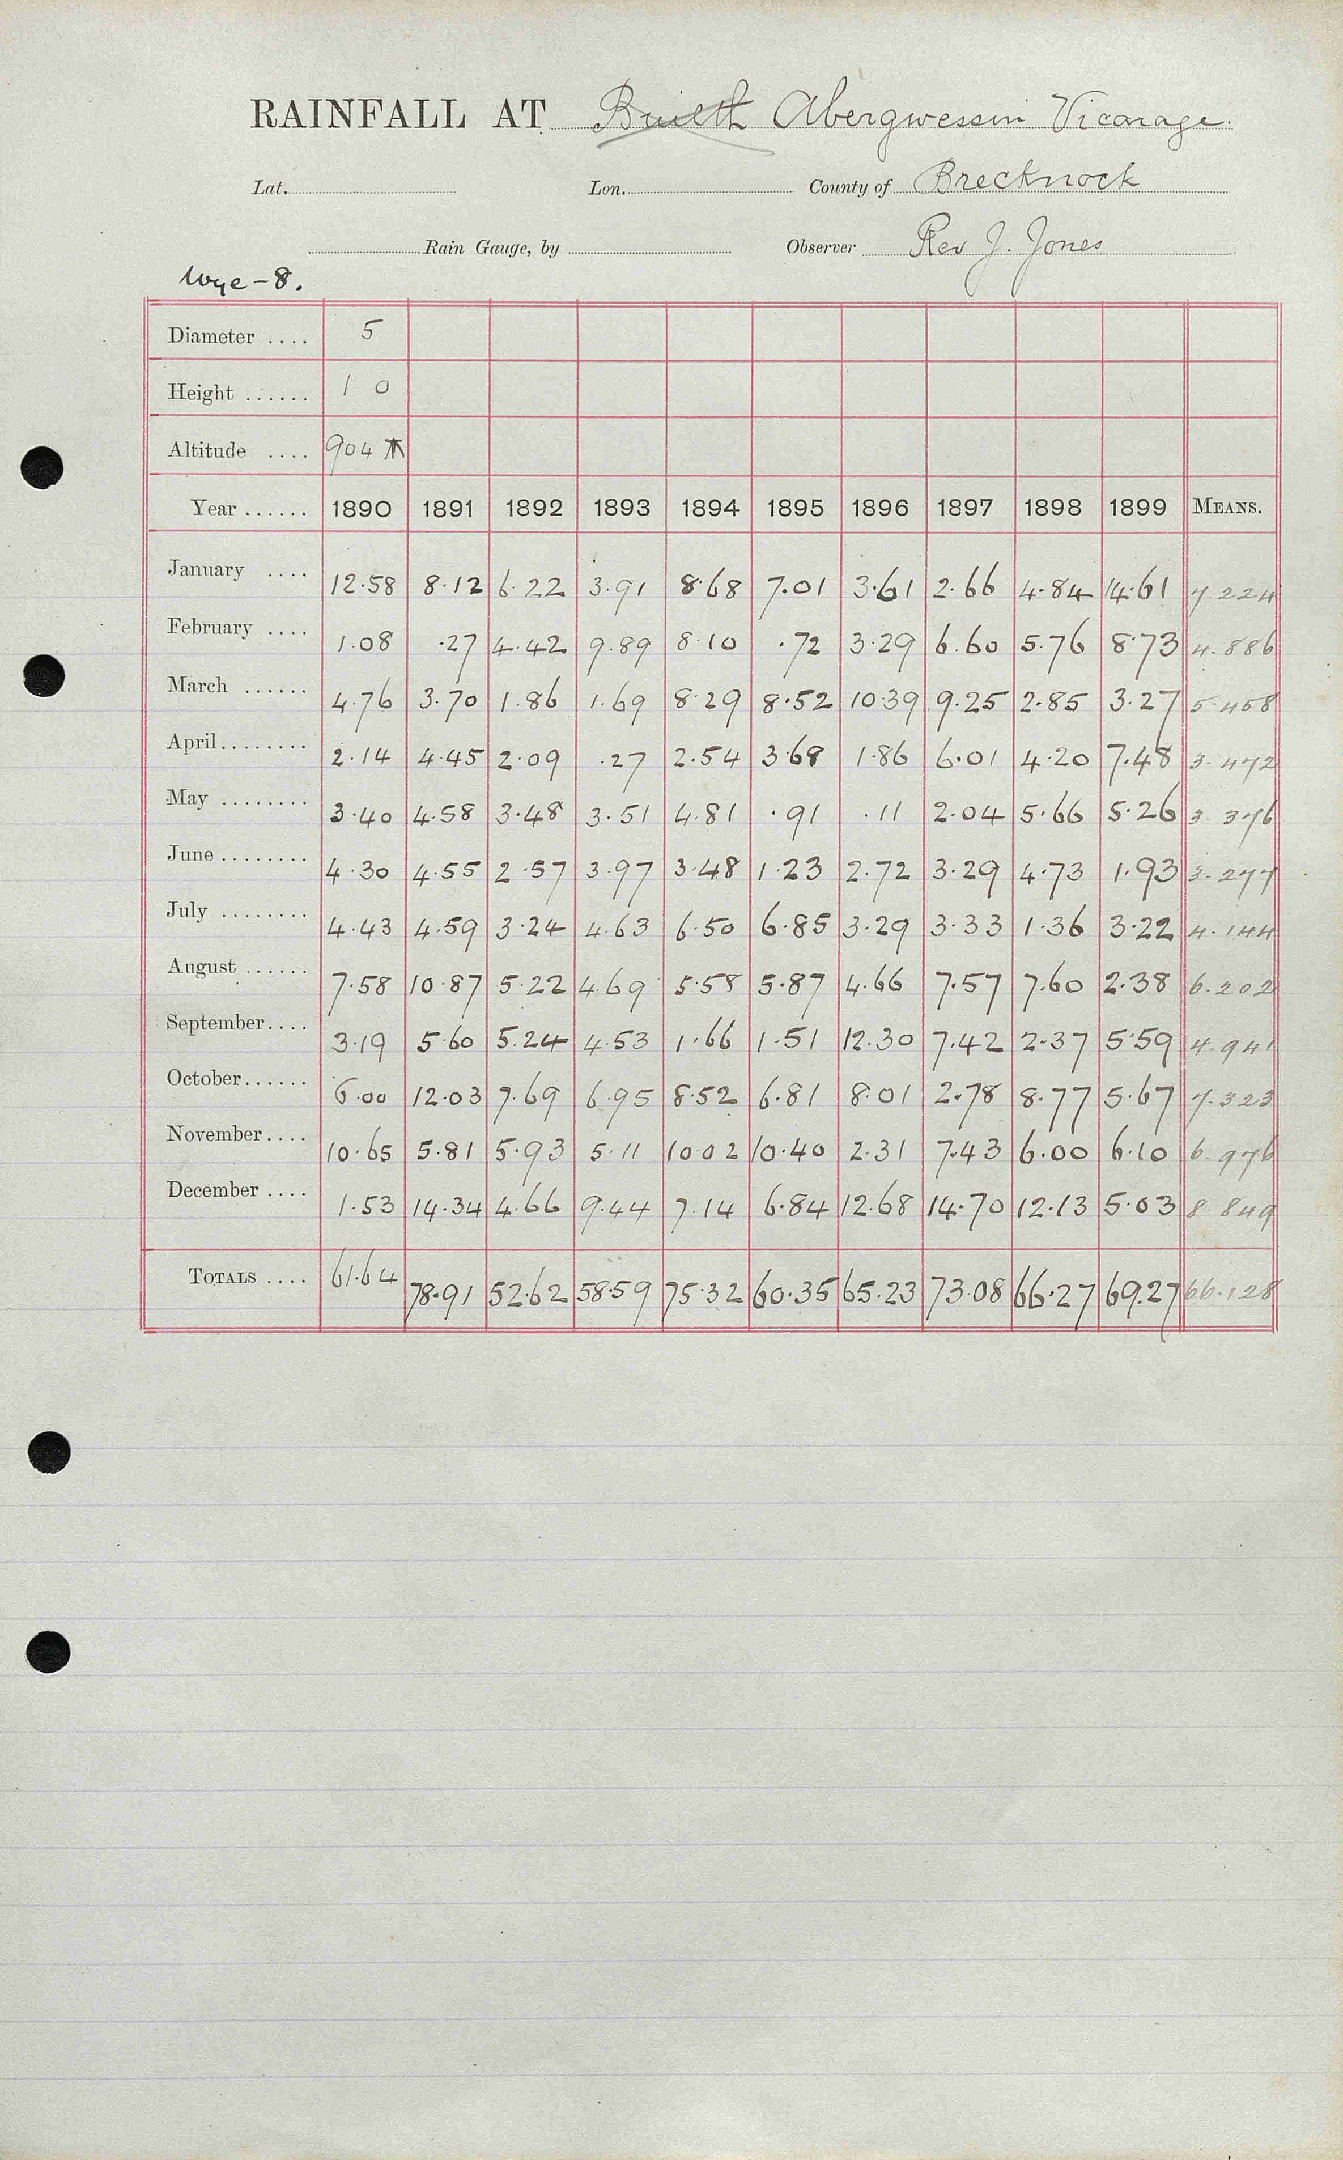 RAINFALL AT Builth Abergwessin Vicarage.
Lat. Lon. County of Brecknock
Rain Gauge, by Observer Rev J. Jones
Wye-8.
Diameter .... 5
Height ...... 1 0
Altitude .... 904
Year ...... 1890 1891 1892 1893 1894 1895 1896 1897 1898 1899 MEANS.
January .... 12.58 8.12 6.22 3.91 8.68 7.01 3.61 2.66 4.84 14.61 7.224
February .... 1.08 .27 4.42 9.89 8.10 .72 3.29 6.60 5.76 8.73 4.886
March ...... 4.76 3.70 1.86 1.69 8.29 8.52 10.39 9.25 2.85 3.27 5.458
April ........ 2.14 4.45 2.09 .27 2.54 3.68 1.86 6.01 4.20 7.48 3.472
May ........ 3.40 4.58 3.48 3.51 4.81 .91 .11 2.04 5.66 5.26 3.376
June ........ 4.30 4.55 2.57 3.97 3.48 1.23 2.72 3.29 4.73 1.93 3.277
July ........ 4.43 4.59 3.24 4.63 6.50 6.85 3.29 3.33 1.36 3.22 4.144
August ...... 7.58 10.87 5.22 4.69 5.58 5.87 4.66 7.57 7.60 2.38 6.202
September .... 3.19 5.60 5.24 4.53 1.66 1.51 12.30 7.42 2.37 5.59 4.941
October ...... 6.00 12.03 7.69 6.95 8.52 6.81 8.01 2.78 8.77 5.67 7.323
November .... 10.65 5.81 5.93 5.11 10.02 10.40 2.31 7.43 6.00 6.10 6.976
December .... 1.53 14.34 4.66 9.44 7.14 6.84 12.68 14.70 12.13 5.03 8.849
TOTALS .... 61.64 78.91 52.62 58.59 75.32 60.35 65.23 73.08 66.27 69.27 66.128